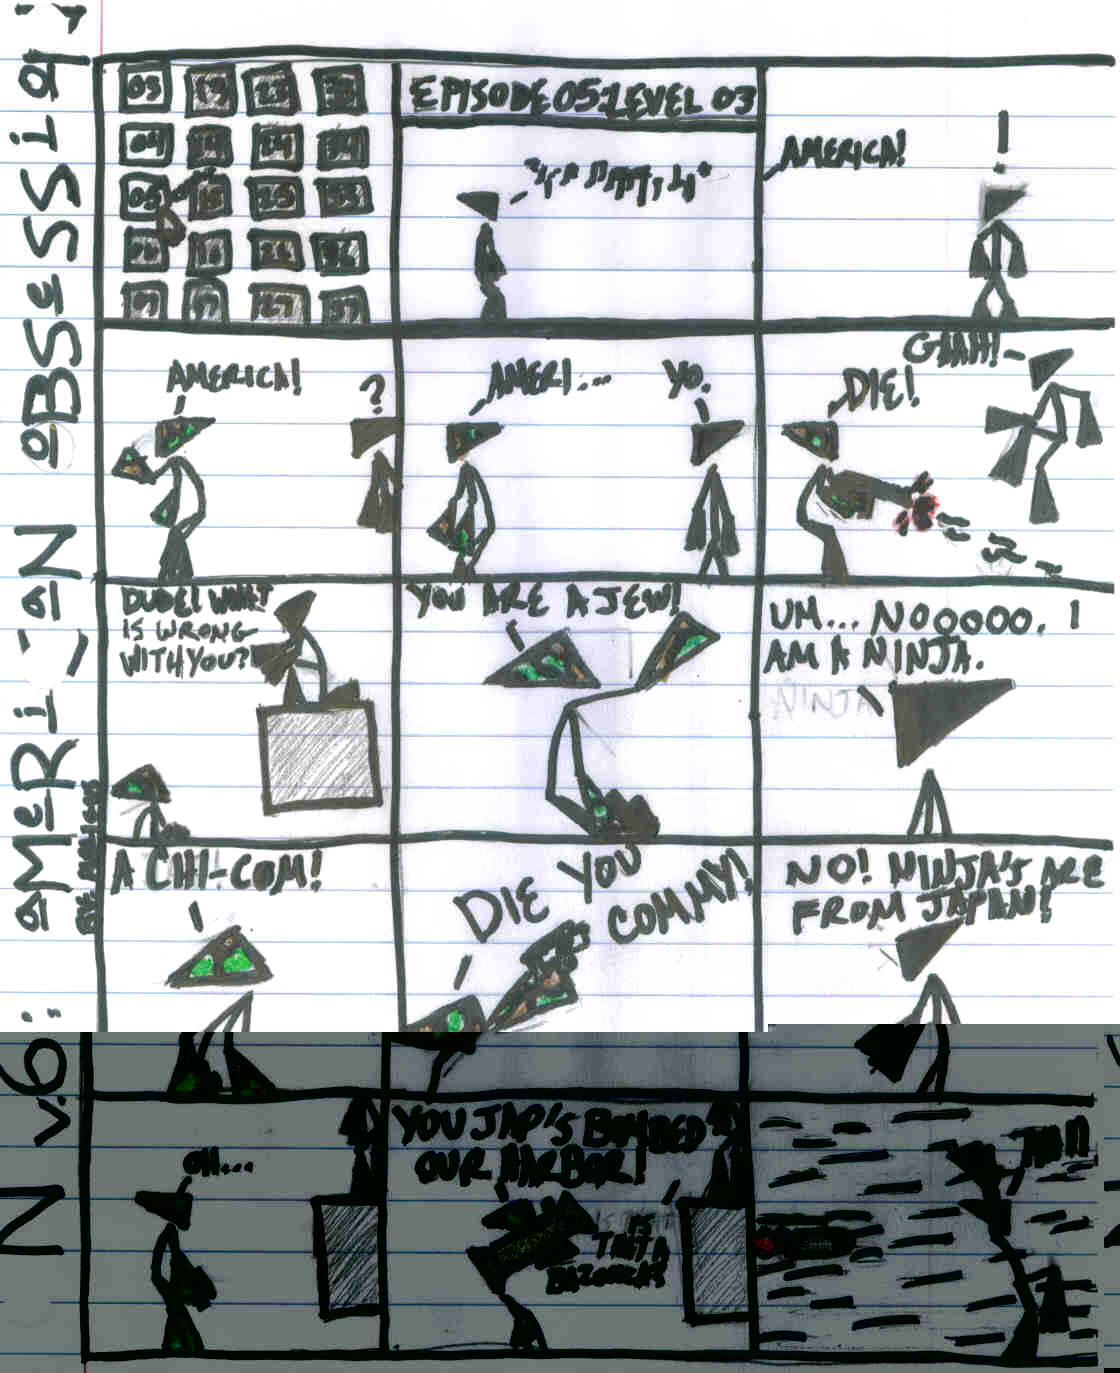 AMERICAN OBSESSION
EPISODE 05: LEVEL 03
03 13 23
04 14 24 34
05 15 25
AMERICA!
!
AMERICA!
?
AMERI...
YO.
DIE!
GAAH!
DUDE! WHAT
IS WRONG
WITH YOU?!
YOU ARE A JEW!
UM... NOOOOO. I
AM A NINJA.
NINJA
A CHI-COM!
DIE YOU
COMMY!
NO! NINJA'S ARE
FROM JAPAN!
N v.6
OH...
YOU JAP'S BOMBED
OUR HARBOR!
IS
THAT A
BAZOOKA?